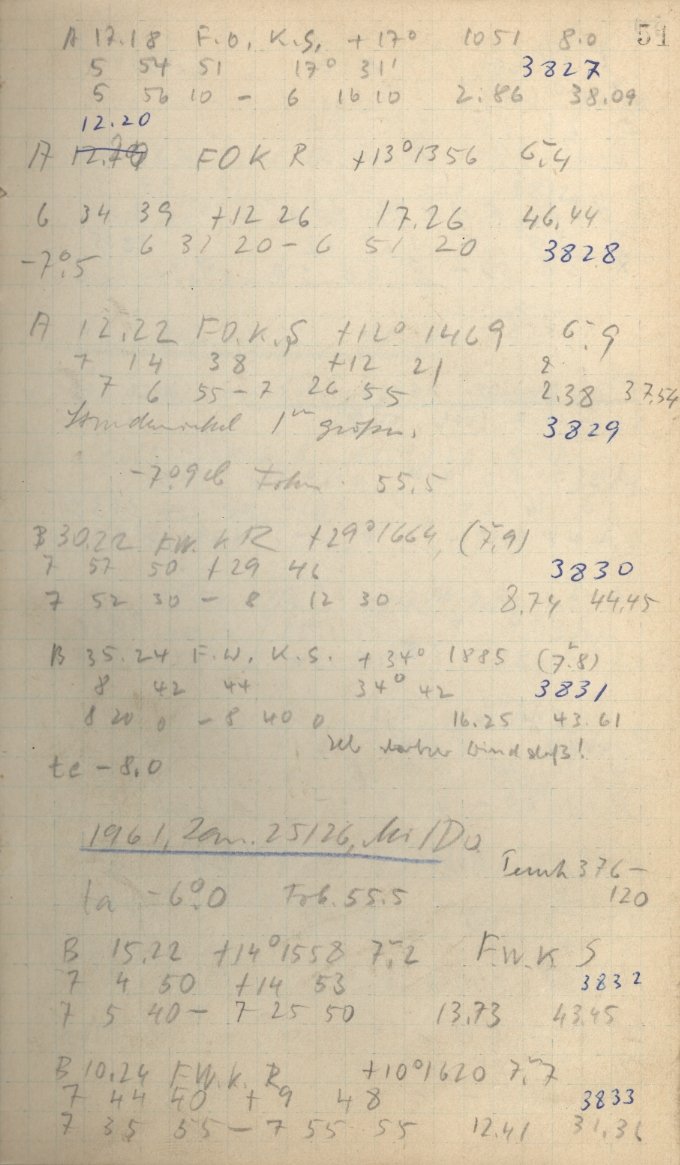 51
A 17.18 F.O. K.S. +17° 1051 8.0
5 54 51 17° 31' 3827
5 56 10 - 6 16 10 2.86 38.09
12.20
A FOK R +13°1356 6.4
6 34 39 +12 26 17.26 46.44
6 31 20 - 6 51 20 3828
-7°.5
A 12.22 F.O.K.S +12° 1469 6.9
7 14 38 +12 21
7 6 55 - 7 26 55 2.38 37.54
Stundenwinkel 1m größer. 3829
-7°.9 55.5
B 30.22 F.W. K R +29°1664 (7.9)
7 57 50 +29 46 3830
7 52 30 - 8 12 30 8.74 44.45
B 35.24 F.W. K.S. +34° 1885 (7.8)
8 42 44 34° 42 3831
8 20 0 - 8 40 0 16.25 43.61
starker Windstoß!
te - 8.0
1961, Jan. 25/26,
376 -
120
ta -6°.0 55.5
B 15.22 +14°1558 7.2 F.W. K S
7 4 50 +14 53 3832
7 5 40 - 7 25 50 13.73 43.45
B 10.24 F.W. K. R +10°1620 7.7
7 44 40 +9 48 3833
7 35 55 - 7 55 55 12.41 31.36